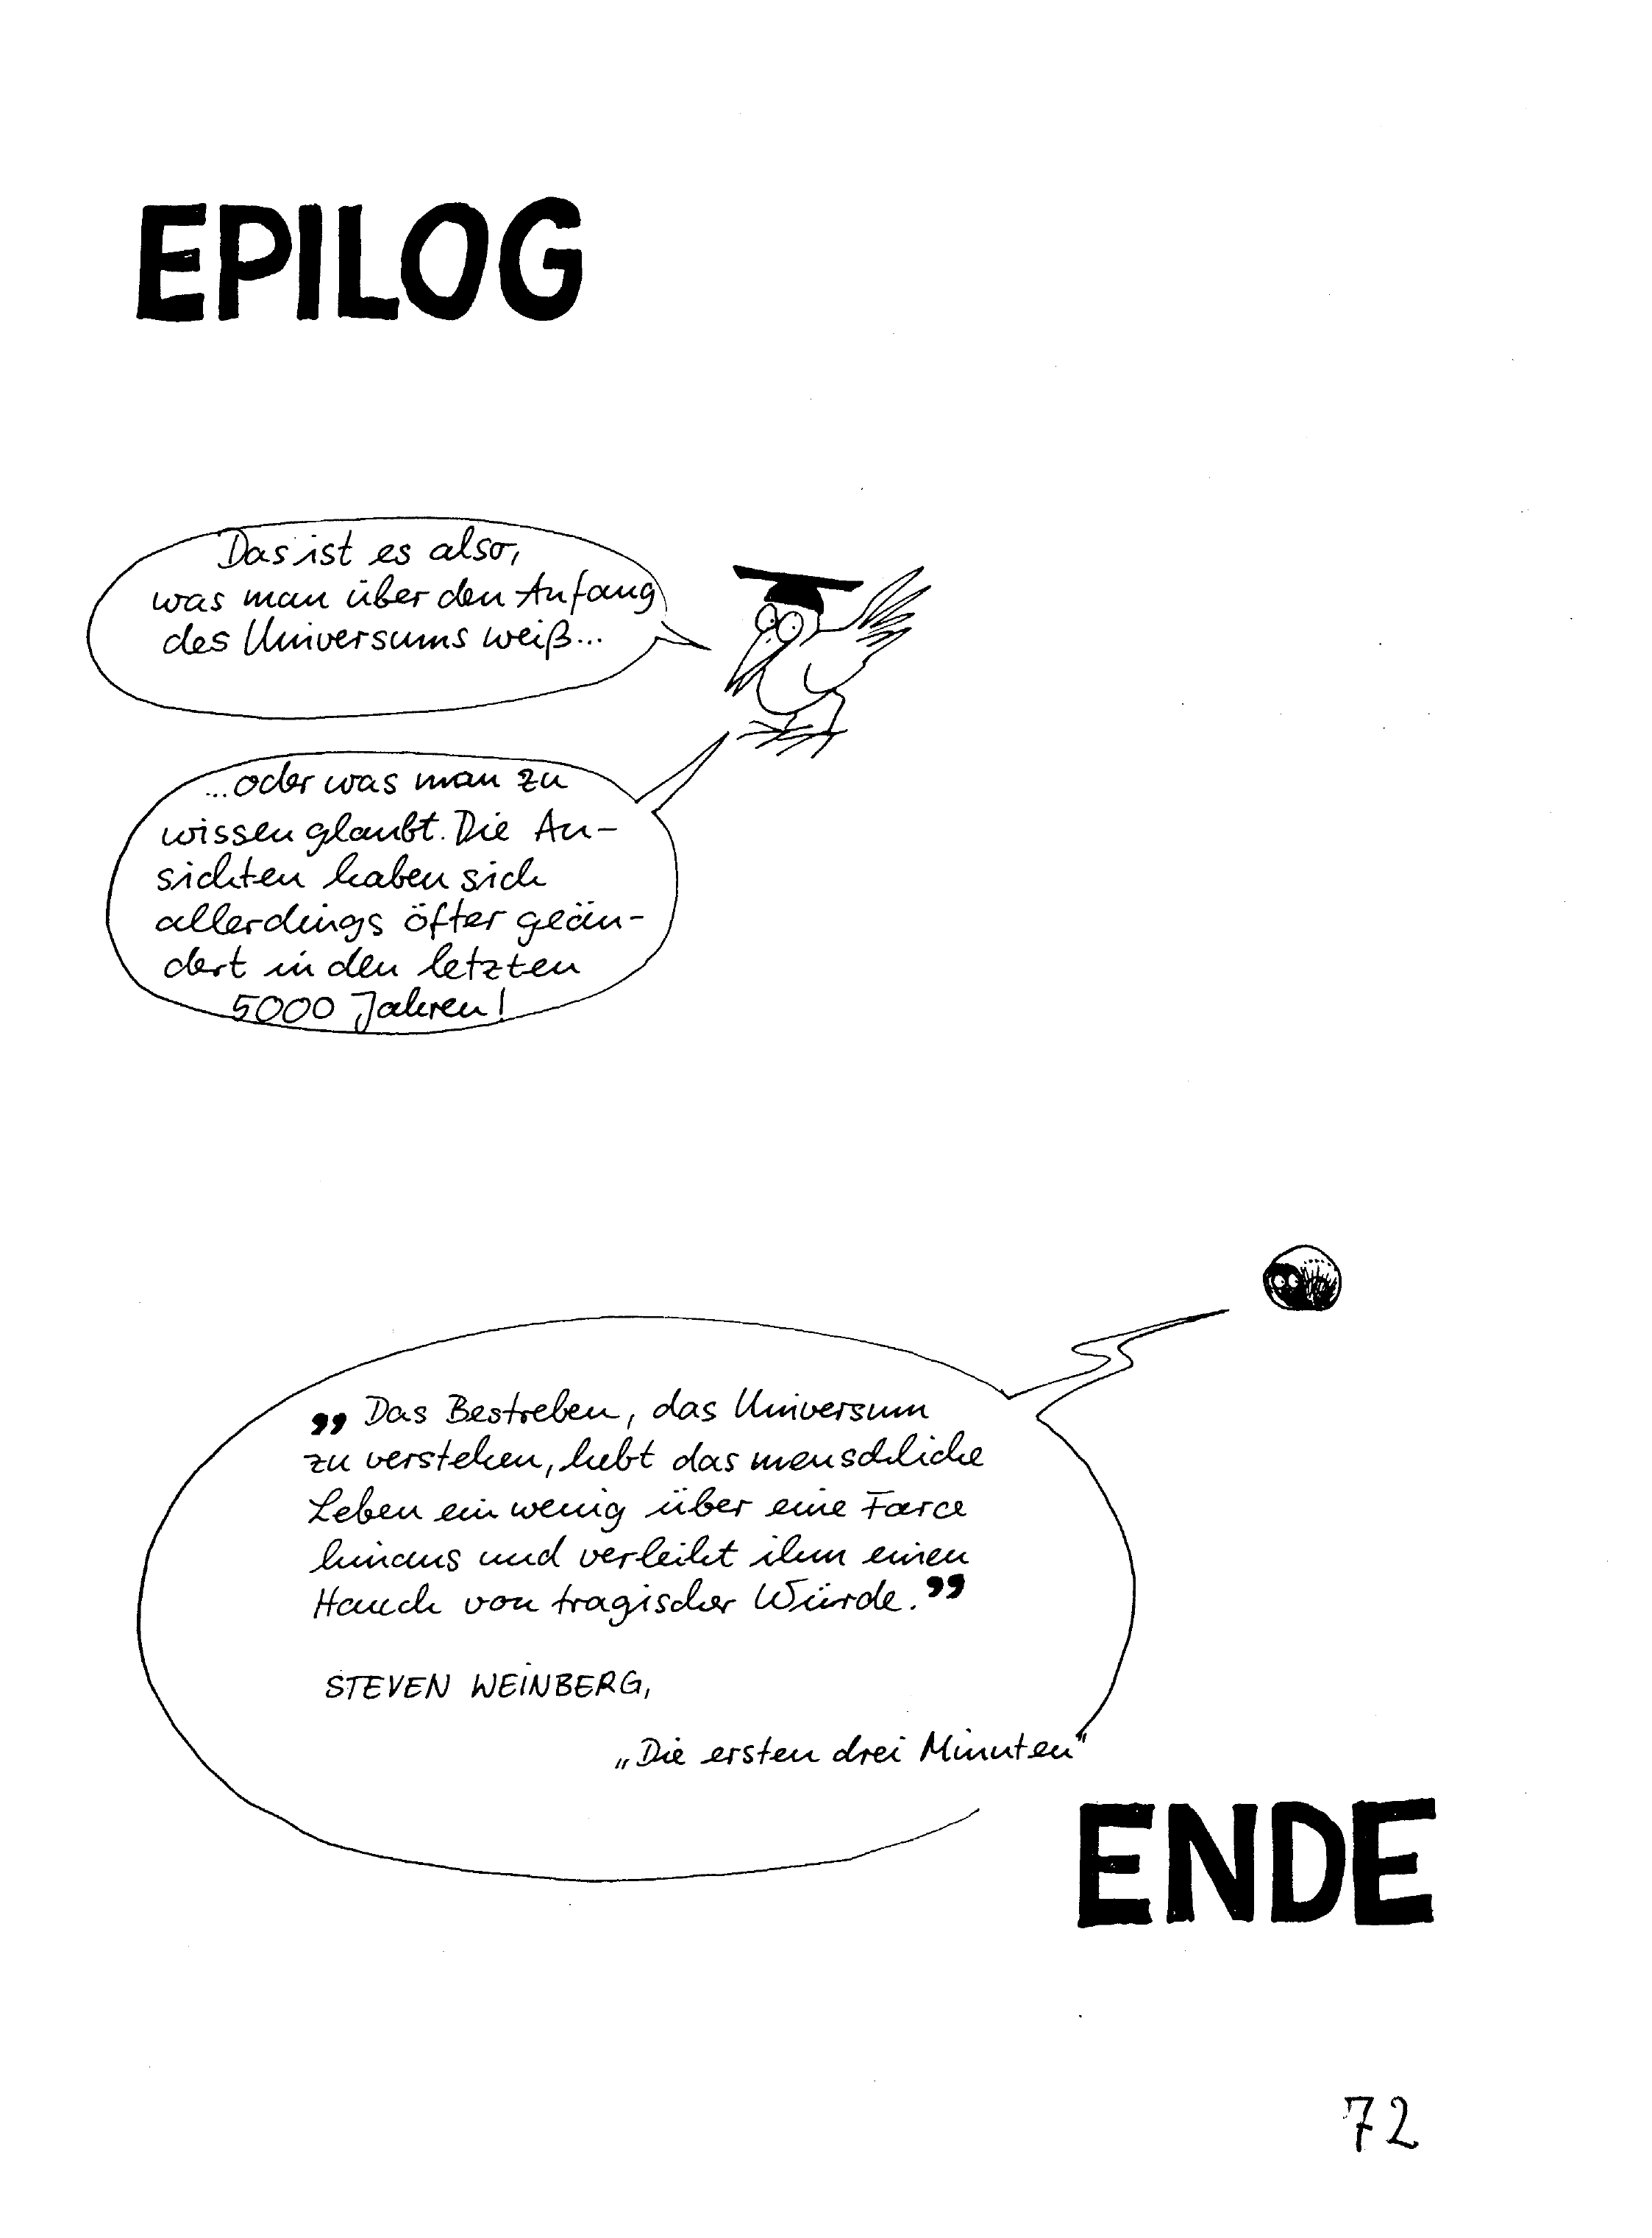 EPILOG
Das ist es also,
was man über den Anfang
des Universums weiß...
...oder was man zu
wissen glaubt. Die An-
sichten haben sich
allerdings öfter geän-
dert in den letzten
5000 Jahren!
„Das Bestreben, das Universum
zu verstehen, hebt das menschliche
Leben ein wenig über eine Farce
hinaus und verleiht ihm einen
Hauch von tragischer Würde.”
STEVEN WEINBERG,
„Die ersten drei Minuten"
ENDE
72